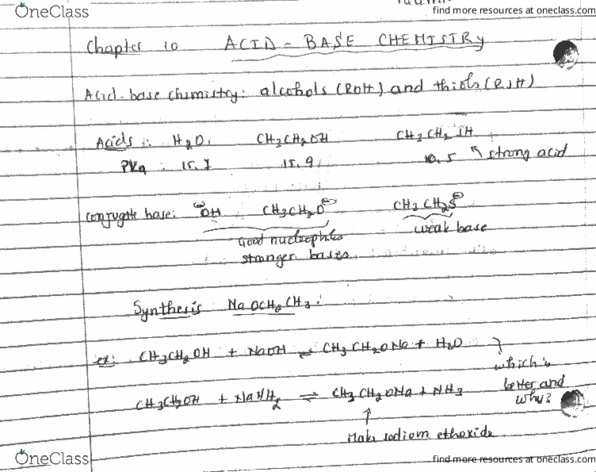 OneClass
find more resources at oneclass.com
Chapter 10 ACID - BASE CHEMISTRY
Acid-base chemistry: alcohols (ROH) and thiols (RSH)
Acids : H2O, CH3CH2OH CH3CH2 SH
PKa : 15.7 15.9 10.5 ↖ strong acid
Conjugate base: ⊖OH CH3CH2O⊖ CH3CH2S⊖
Good nucleophiles weak base
stronger bases
Synthesis NaOCH2CH3:
ex: CH3CH2OH + NaOH ⇌ CH3CH2ONa + H2O
which is
better and
why?
CH3CH2OH + NaNH2 ⇌ CH3CH2ONa + NH3
↑
Make sodium ethoxide
OneClass
find more resources at oneclass.com